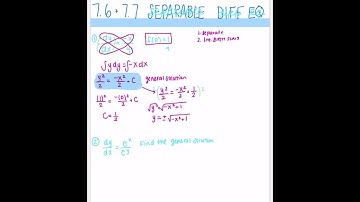 7.6 + 7.7 SEPARABLE DIFF EQ
①
f(0)=1
1. separate
2. Int. Both sides
∫y dy = ∫-x dx
y²/2 = -x²/2 + C general solution
(1)²/2 = -(0)²/2 + C
C = 1/2
(y²/2 = -x²/2 + 1/2)2
√y² = √-x²+1
y = ±√-x²+1
② dy/dx = eˣ/eʸ Find the general solution